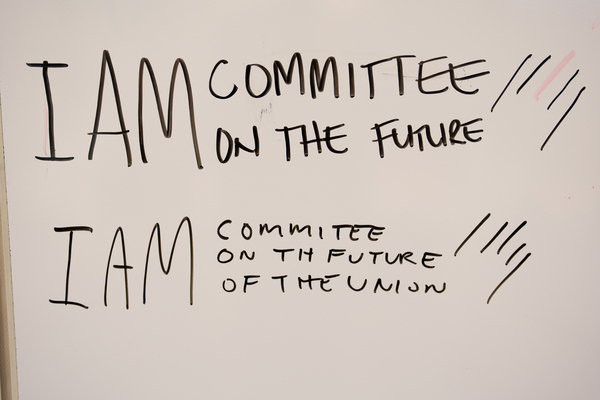 I AM COMMITTEE
ON THE FUTURE
I AM COMMITEE
ON TH FUTURE
OF THE UNION